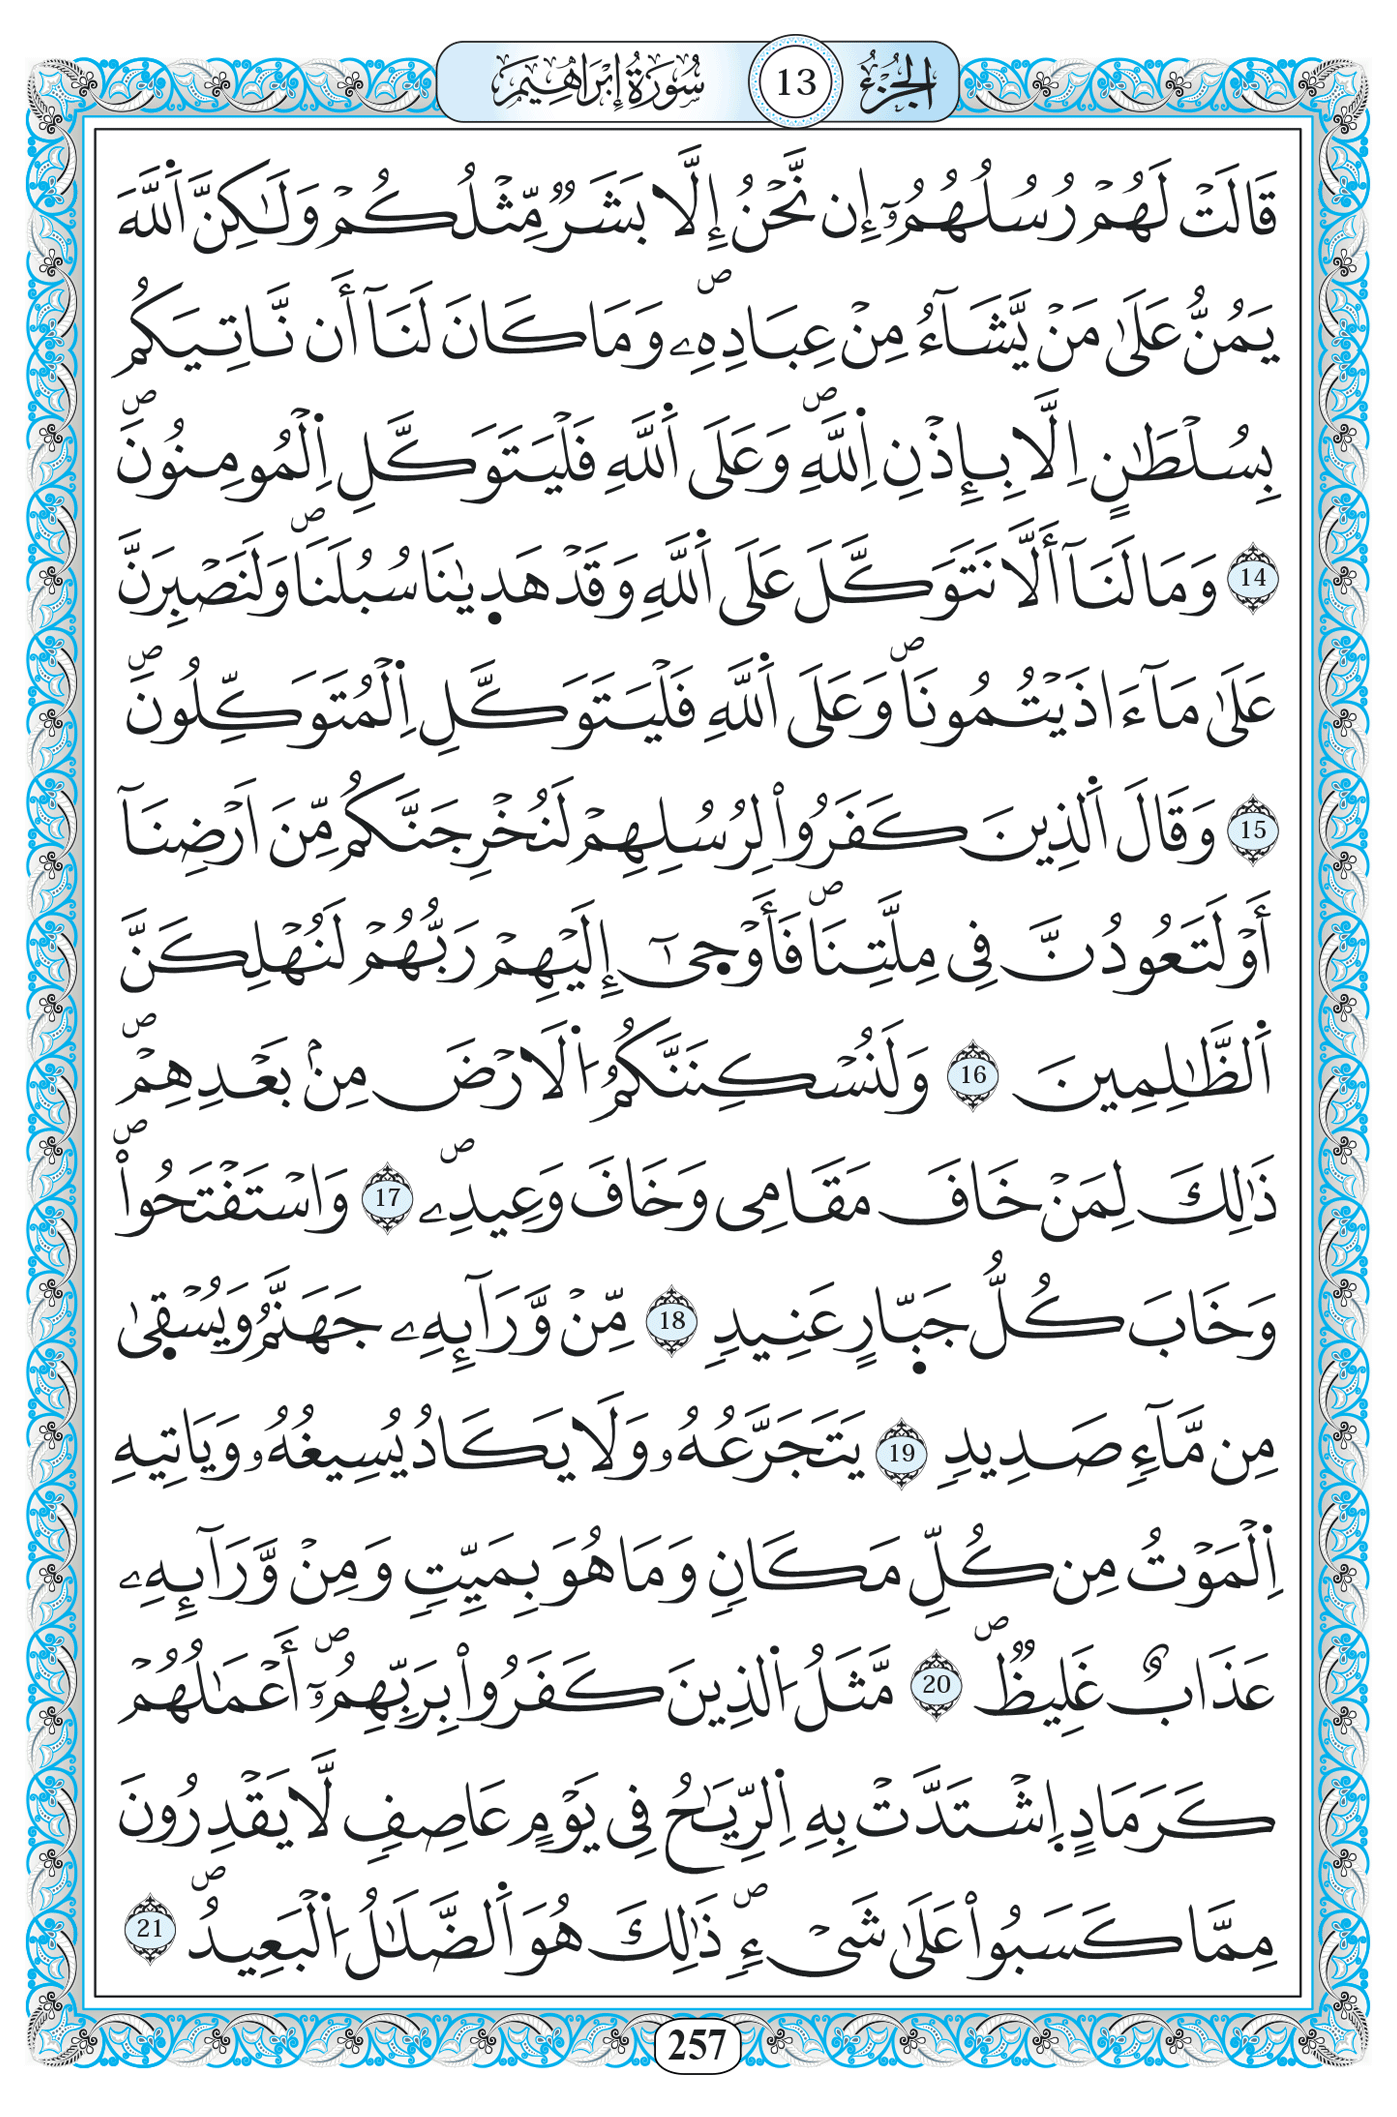 الجزء 13 سورة إبراهيم
قَالَتْ لَهُمْ رُسُلُهُمُۥٓ إِن نَّحْنُ إِلَّا بَشَرٞ مِّثْلُكُمْ وَلَٰكِنَّ اَ۬للَّهَ
يَمُنُّ عَلَىٰ مَنْ يَّشَآءُ مِنْ عِبَادِهِۦۖ وَمَا كَانَ لَنَآ أَن نَّاتِيَكُم
بِسُلْطَٰنٍ اِلَّا بِإِذْنِ اِ۬للَّهِۖ وَعَلَى اَ۬للَّهِ فَلْيَتَوَكَّلِ اِ۬لْمُومِنُونَۖ
14 وَمَا لَنَآ أَلَّا نَتَوَكَّلَ عَلَى اَ۬للَّهِ وَقَدْ هَد۪يٰنَا سُبُلَنَاۖ وَلَنَصْبِرَنَّ
عَلَىٰ مَآ ءَاذَيْتُمُونَاۖ وَعَلَى اَ۬للَّهِ فَلْيَتَوَكَّلِ اِ۬لْمُتَوَكِّلُونَۖ
15 وَقَالَ اَ۬لذِينَ كَفَرُواْ لِرُسُلِهِمْ لَنُخْرِجَنَّكُم مِّنَ اَرْضِنَآ
أَوْ لَتَعُودُنَّ فِي مِلَّتِنَاۖ فَأَوْح۪ىٰٓ إِلَيْهِمْ رَبُّهُمْ لَنُهْلِكَنَّ
اَ۬لظَّٰلِمِينَ 16 وَلَنُسْكِنَنَّكُمُ اُ۬لَارْضَ مِنۢ بَعْدِهِمْۖ
ذَٰلِكَ لِمَنْ خَافَ مَقَامِى وَخَافَ وَعِيدِۦۖ 17 وَاسْتَفْتَحُواْۖ
وَخَابَ كُلُّ جَبّ۪ارٍ عَنِيدٖ 18 مِّنْ وَّرَآئِهِۦ جَهَنَّمُ وَيُسْق۪ىٰ
مِن مَّآءٖ صَدِيدٖ 19 يَتَجَرَّعُهُۥ وَلَا يَكَادُ يُسِيغُهُۥ وَيَاتِيهِ
اِ۬لْمَوْتُ مِن كُلِّ مَكَانٖ وَمَا هُوَ بِمَيِّتٖ وَمِنْ وَّرَآئِهِۦ
عَذَابٌ غَلِيظٞۖ 20 مَّثَلُ اُ۬لذِينَ كَفَرُواْ بِرَبِّهِمُۥٓۖ أَعْمَٰلُهُمْ
كَرَمَادٍ اِ۪شْتَدَّتْ بِهِ اِ۬لرِّيَٰحُ فِي يَوْمٍ عَاصِفٖ لَّا يَقْدِرُونَ
مِمَّا كَسَبُواْ عَلَىٰ شَىْءٖۖ ذَٰلِكَ هُوَ اَ۬لضَّلَٰلُ اُ۬لْبَعِيدُۖ 21
257